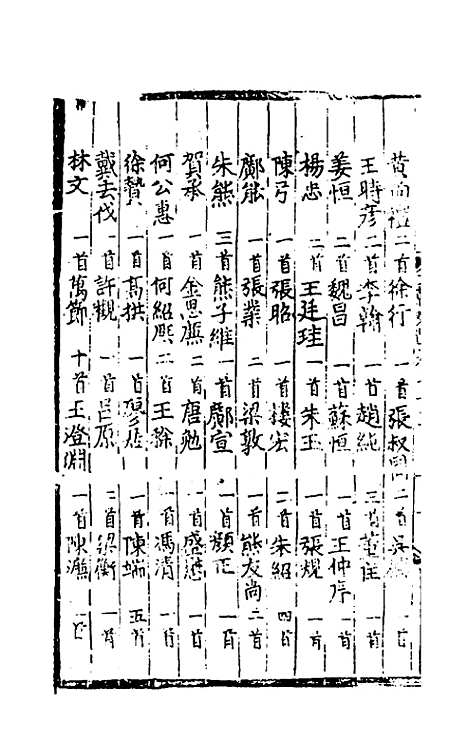 黄 二首 徐行 一首 張叔 二首
王時彦 二首 李翰 一首 趙純 三首 董 一首
姜恒 二首 魏昌 一首 蘇恒 一首 王仲序 一首
楊忠 二首 王廷珪 一首 朱玉 一首 張規 一首
陳弓 一首 張昭 一首 樓宏 二首 朱紹 四首
鄺能 一首 張業 二首 梁敦 一首 熊友尚 二首
朱熊 三首 熊子維 一首 鄺宣 一首 顏正 一首
賀承 一首 金思 二首 唐勉 一首 盛 一首
何公惠 一首 何紹熙 二首 王 一首 馮清 一首
徐贊 一首 髙拱 一首 一首 陳端 五首
戴去伐 一首 許觀 一首 吕原 二首 梁衡 一首
林文 一首 萬節 十首 王澄淵 一首 陳 一首